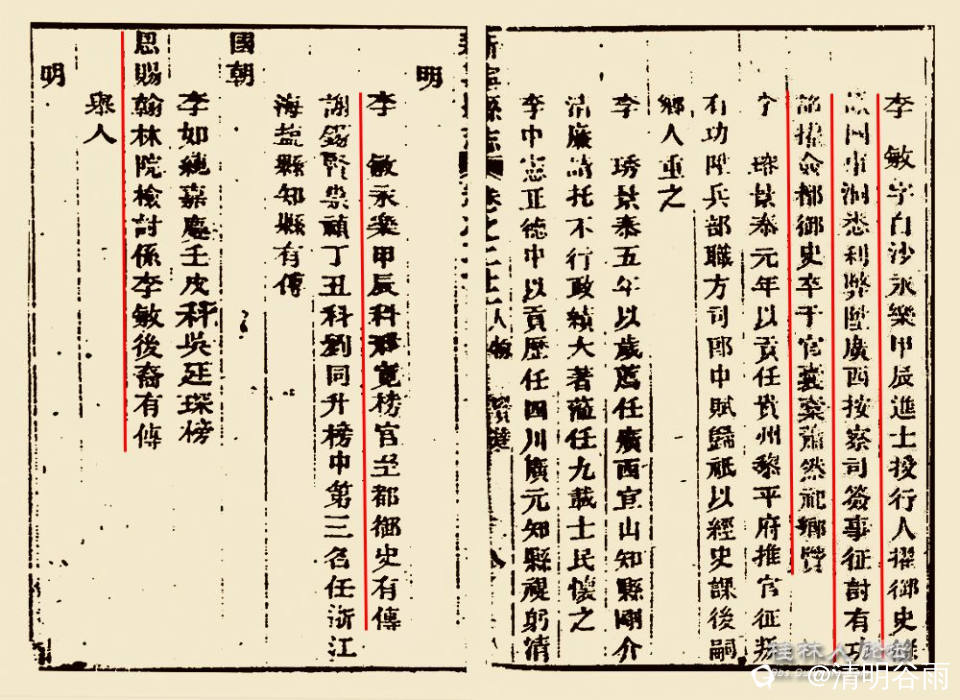 李　敏字白沙永樂甲辰進士授行人擢御史
因事洞悉利弊陞廣西按察司僉事征討有功
擢僉都御史卒于官囊橐蕭然祀鄉賢
琛景泰元年以貢任貴州黎平府推官征
有功陞兵部職方司郎中賦歸祇以經史課後嗣
鄉人重之
李　琇景泰五年以歲薦任廣西宜山知縣剛介
清廉請托不行政績大著蒞任九載士民懷之
李中憲正德中以貢歷任四川廣元知縣視躬清
新寧縣志 卷之二十 人物
明
李　敏永樂甲辰科邢寬榜官至都御史有傳
謝錫賢崇禎丁丑科劉同升榜中第三名任浙江
海鹽縣知縣有傳
國朝
李如 嘉慶壬戌科吳廷琛榜
恩賜翰林院檢討係李敏後裔有傳
舉人
明
桂林人論壇
@清明谷雨